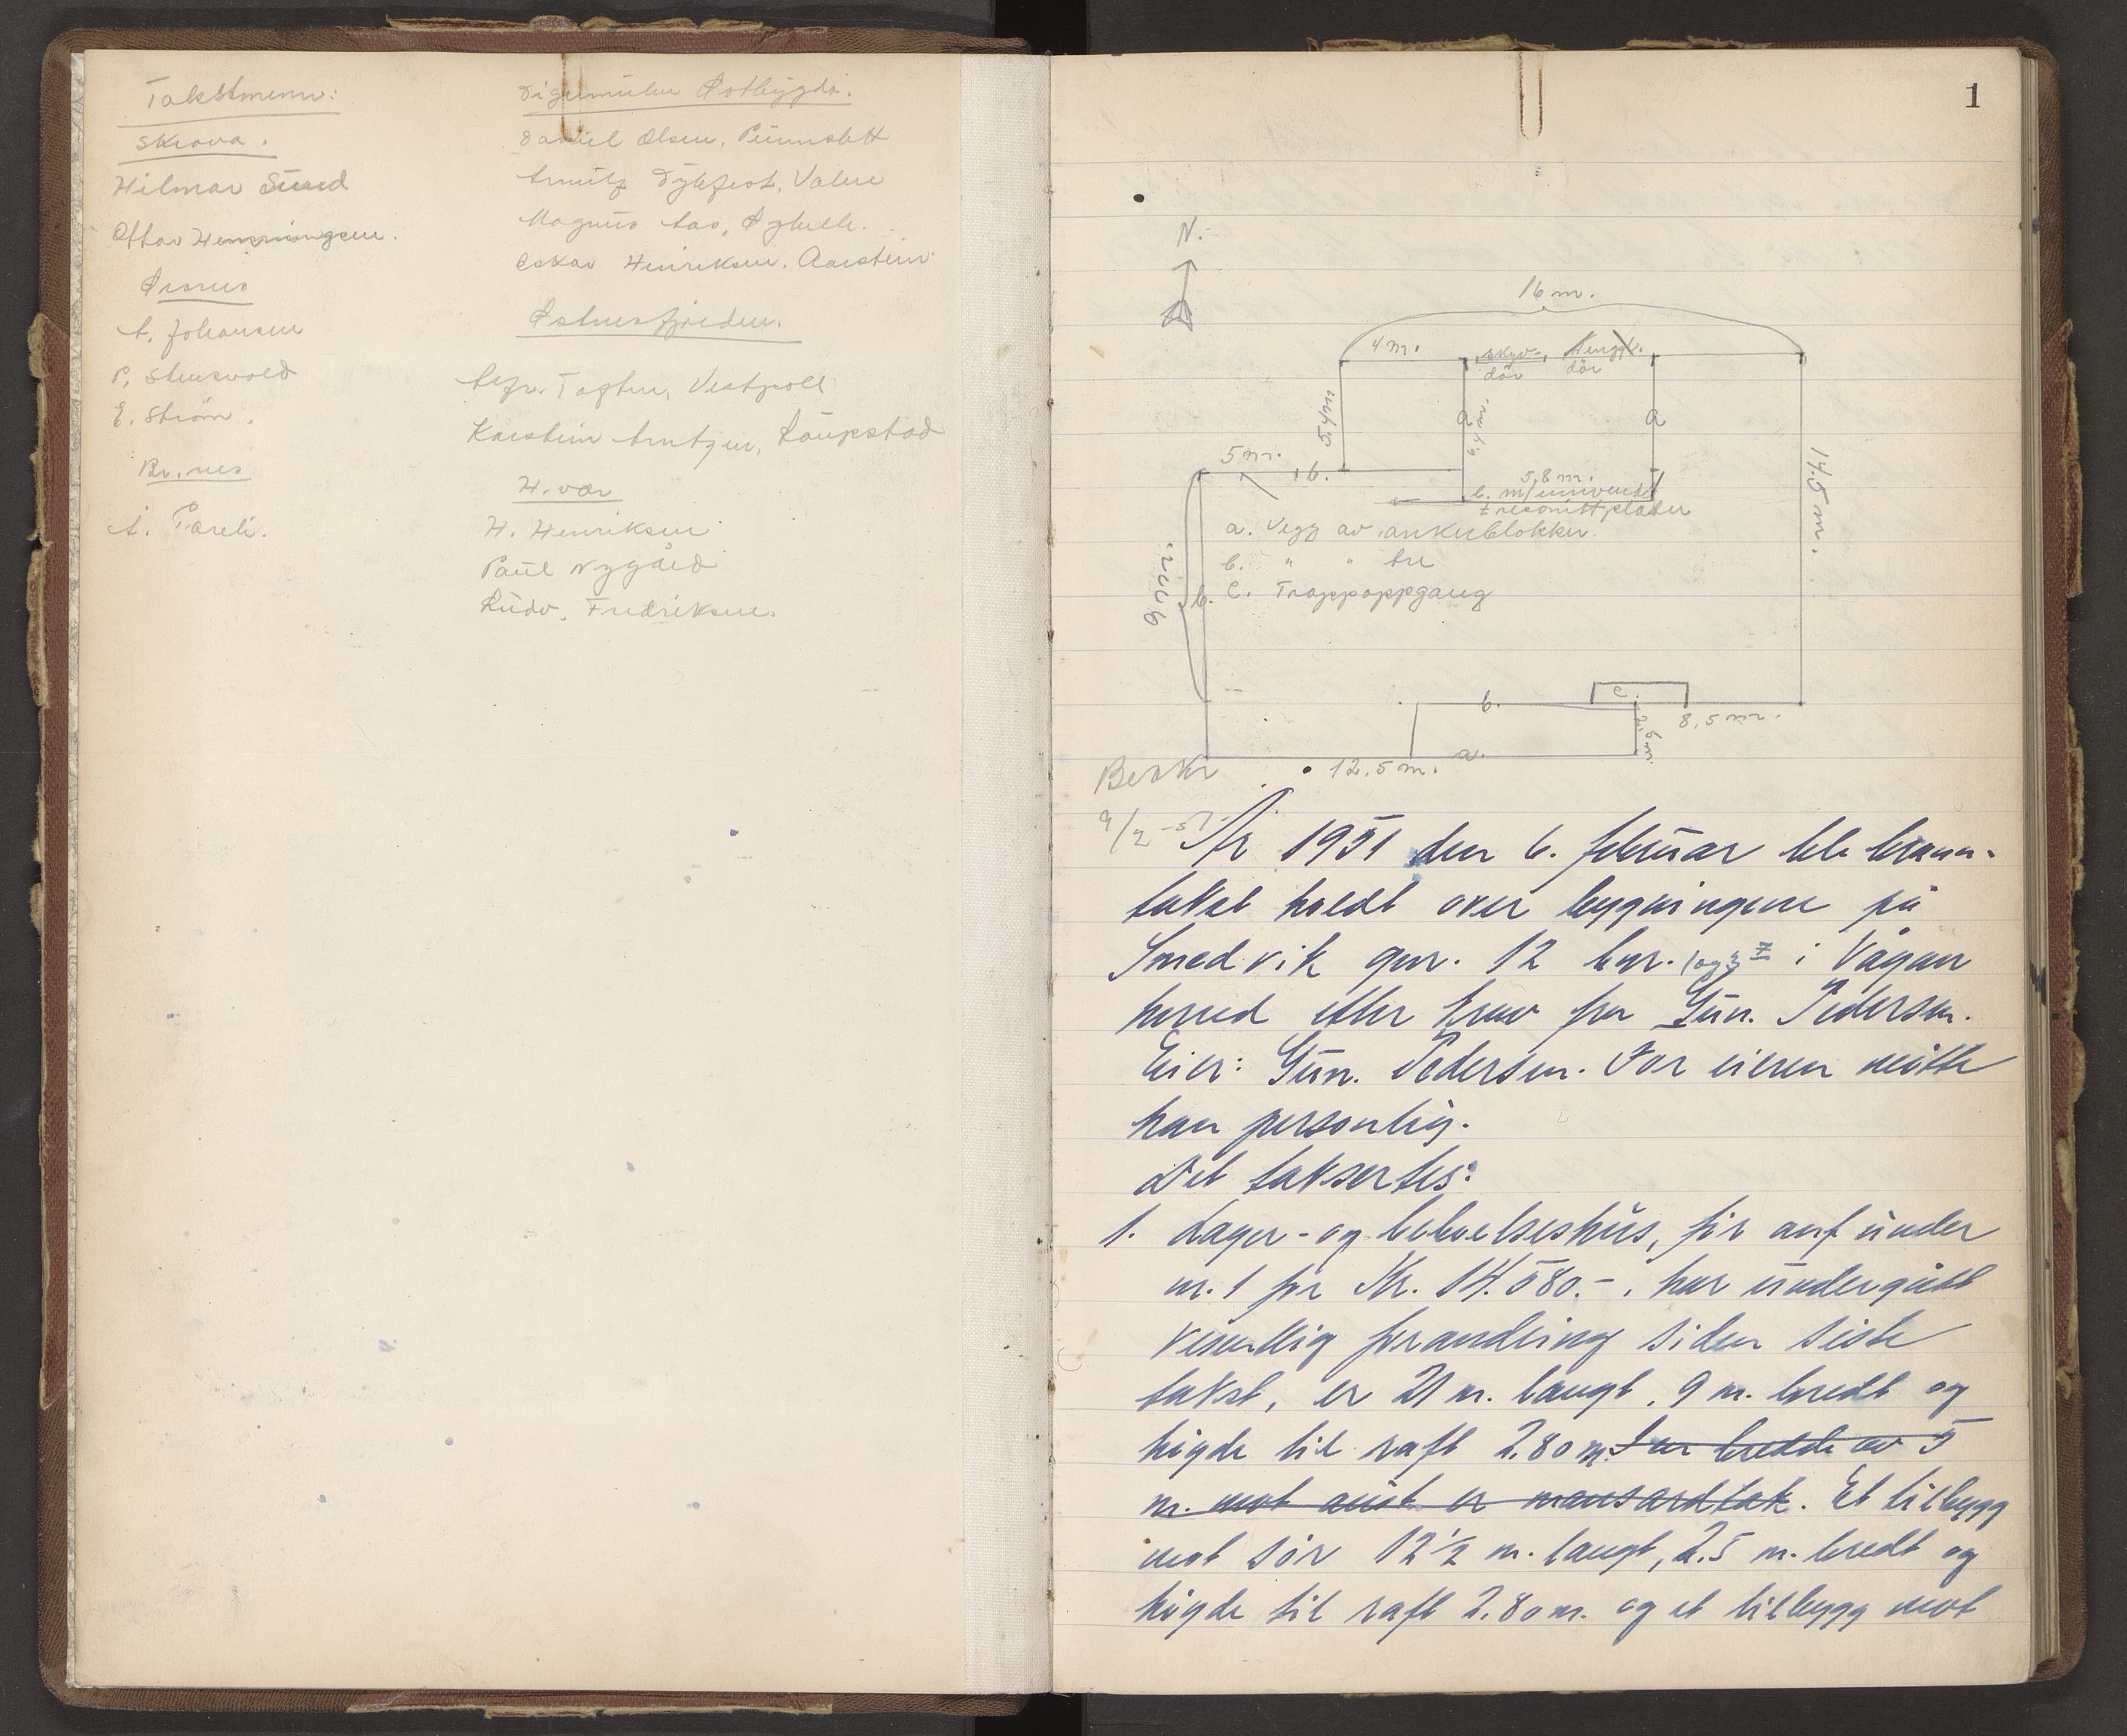 Takstmenn:
Skrova.
Hilmar Sund
Ottar Henningsen.
Ørsnes
A. Johansen
P. Stensvold
E. Strøm.
Br.nes
A. Pareli.
Digermulen Østbygda.
Daniel Olsen,
Arnulf Dybfest, Valen
Magnus Aas,
Oskar Henriksen. Aarstein
Østnesfjorden.
Alfr. Toften, Vestpoll
Karstein Arntzen, Laupstad
H.vær
H. Henriksen
Paul Nygård
Ludv. Fredriksen.
1
N.
16 m.
4 m.
skyv-
dör
dör
5,4 m
a
6,4 m.
a
14,5 m.
5 m.
b.
5,8 m.
b. m/innvendig
tresonittplater
a. Vegg av ankerblokker.
b. " " tre
C. Trappoppgang
9 m.
b.
c.
b.
8,5 m.
2,5 m.
a.
12,5 m.
Beskr
9/2-51-
År 1951 den 6. februar ble brann-
takst holdt over bygningene på
Smedvik gnr. 12 bnr. 1 og 3 i Vågan
herred etter krav fra Gun. Pedersen.
Eier: Gun. Pedersen. For eieren møtte
han personlig.
Det taksertes:
1. Lager- og beboelseshus, før anf under
nr. 1 for Kr. 14.580.-, har undergått
vesentlig forandring siden siste
takst, er 21 m. langt, 9 m. bredt og
høgde til raft 2.80 m. I en bredde av 5
m. mot aust er mansardtak. Et tilbygg
mot sør 12 1/2 m. langt, 2.5 m. bredt og
høgde til raft 2.80 m. og et tilbygg mot